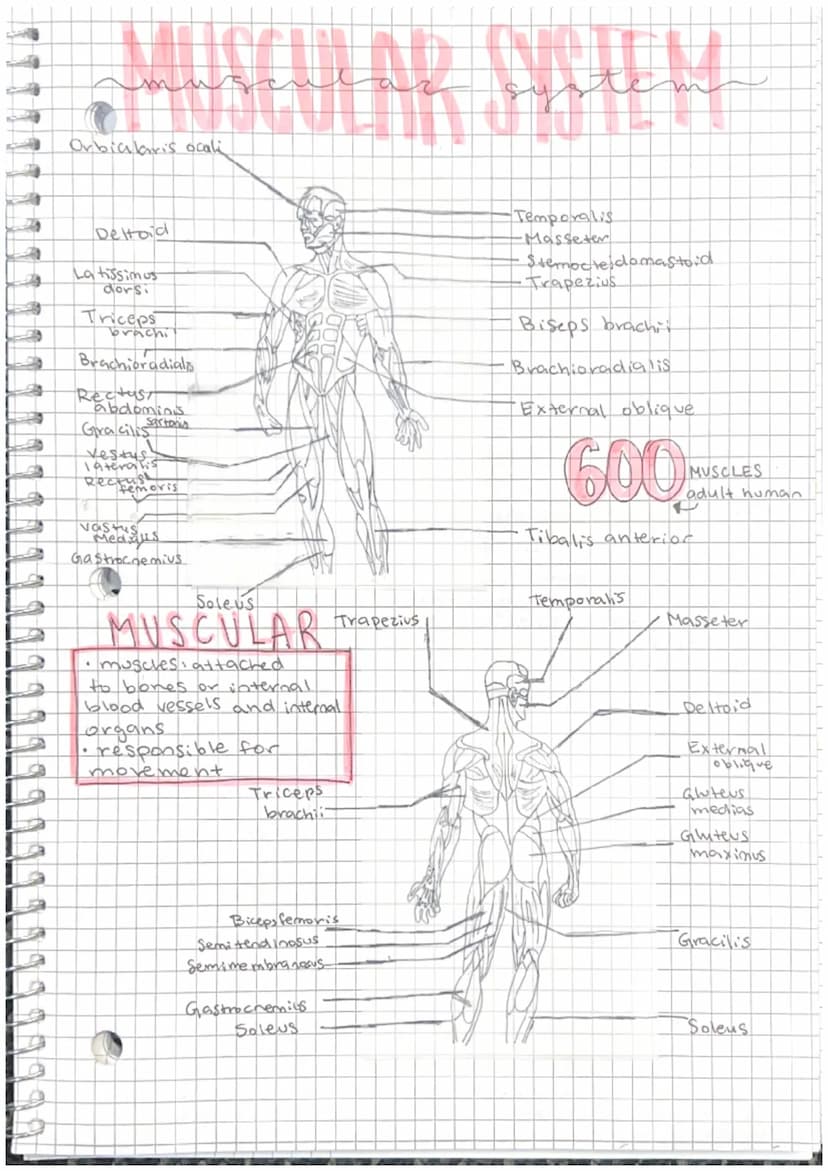 MUSCULAR SYSTEM
muscular system
Orbicularis oculi
Deltoid
Latissimus
dorsi
Triceps
brachii
Brachioradialis
Rectus
abdominis
Gracilis
Sartorius
Vestus
lateralis
Rectus
femoris
Vastus
Medialis
Gastrocnemius
Soleus
Temporalis
Masseter
Sternocleidomastoid
Trapezius
Biseps brachii
Brachioradialis
External oblique
600 MUSCLES
adult human
Tibalis anterior
MUSCULAR
• muscles: attached
to bones or internal
blood vessels and internal
organs
• responsible for
movement
Trapezius
Temporalis
Masseter
Deltoid
External
oblique
Gluteus
medias
Gluteus
maximus
Triceps
brachii
Biceps femoris
Semitendinosus
Semimembranosus
Gastrocnemius
Soleus
Gracilis
Soleus